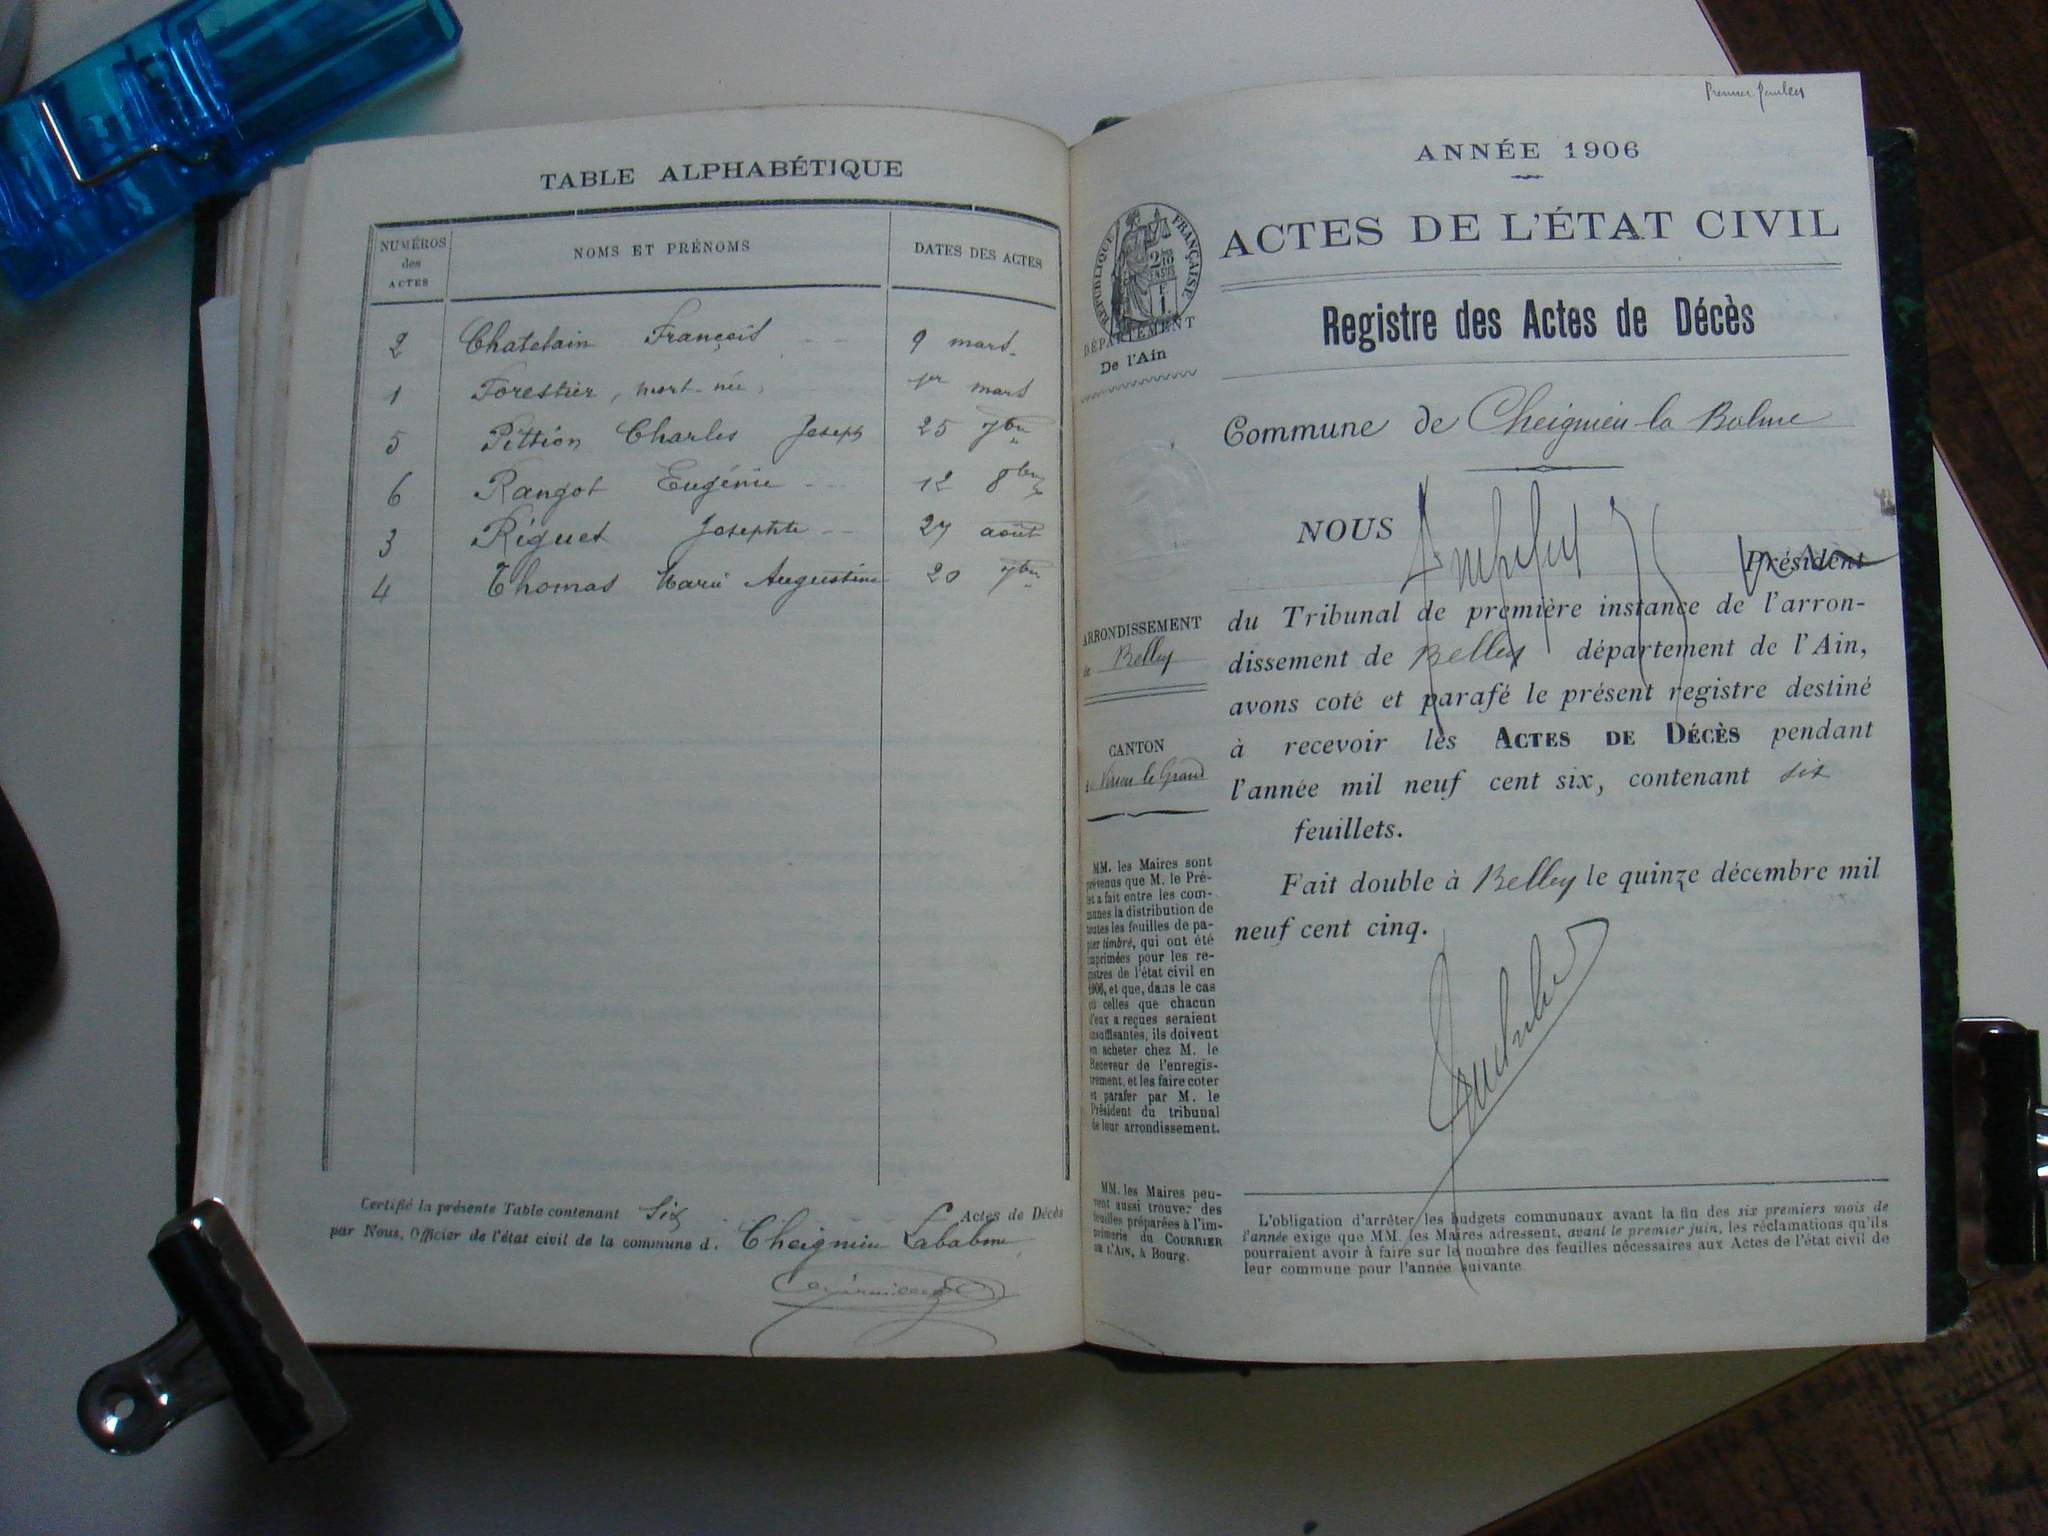 TABLE ALPHABÉTIQUE
NUMÉROS des ACTES NOMS ET PRÉNOMS DATES DES ACTES
2 Chatelain François 9 mars
1 Forestier, mort-née, 1er mars
5 Pittion Charles Joseph 25 7bre
6 Rangot Eugénie 12 8bre
3 Riguet Josephte 27 août
4 Thomas Marie Augustine 20 7bre
Certifié la présente Table contenant Six Actes de Décès
par Nous, Officier de l'état civil de la commune d. Cheignieu Labalme
Premier feuillet
ANNÉE 1906
ACTES DE L'ÉTAT CIVIL
RÉPUBLIQUE FRANÇAISE
DÉPARTEMENT
De l'Ain
Registre des Actes de Décès
Commune de Cheignieu-la Balme
NOUS
Président
du Tribunal de première instance de l'arron-
dissement de Belley département de l'Ain,
avons coté et parafé le présent registre destiné
à recevoir les ACTES DE DÉCÈS pendant
l'année mil neuf cent six, contenant six
feuillets.
Fait double à Belley le quinze décembre mil
neuf cent cinq.
ARRONDISSEMENT
de Belley
CANTON
de Virieu le Grand
MM. les Maires sont
prévenus que M. le Pré-
fet a fait entre les com-
munes la distribution de
toutes les feuilles de pa-
pier timbré, qui ont été
imprimées pour les re-
gistres de l'état civil en
1906, et que, dans le cas
où celles que chacun
d'eux a reçues seraient
insuffisantes, ils doivent
en acheter chez M. le
Receveur de l'enregis-
trement, et les faire coter
et parafer par M. le
Président du tribunal
de leur arrondissement.
MM. les Maires peu-
vent aussi trouver des
feuilles préparées à l'im-
primerie du COURRIER
DE L'AIN, à Bourg.
L'obligation d'arrêter les budgets communaux avant la fin des six premiers mois de
l'année exige que MM. les Maires adressent, avant le premier juin, les réclamations qu'ils
pourraient avoir à faire sur le nombre des feuilles nécessaires aux Actes de l'état civil de
leur commune pour l'année suivante.